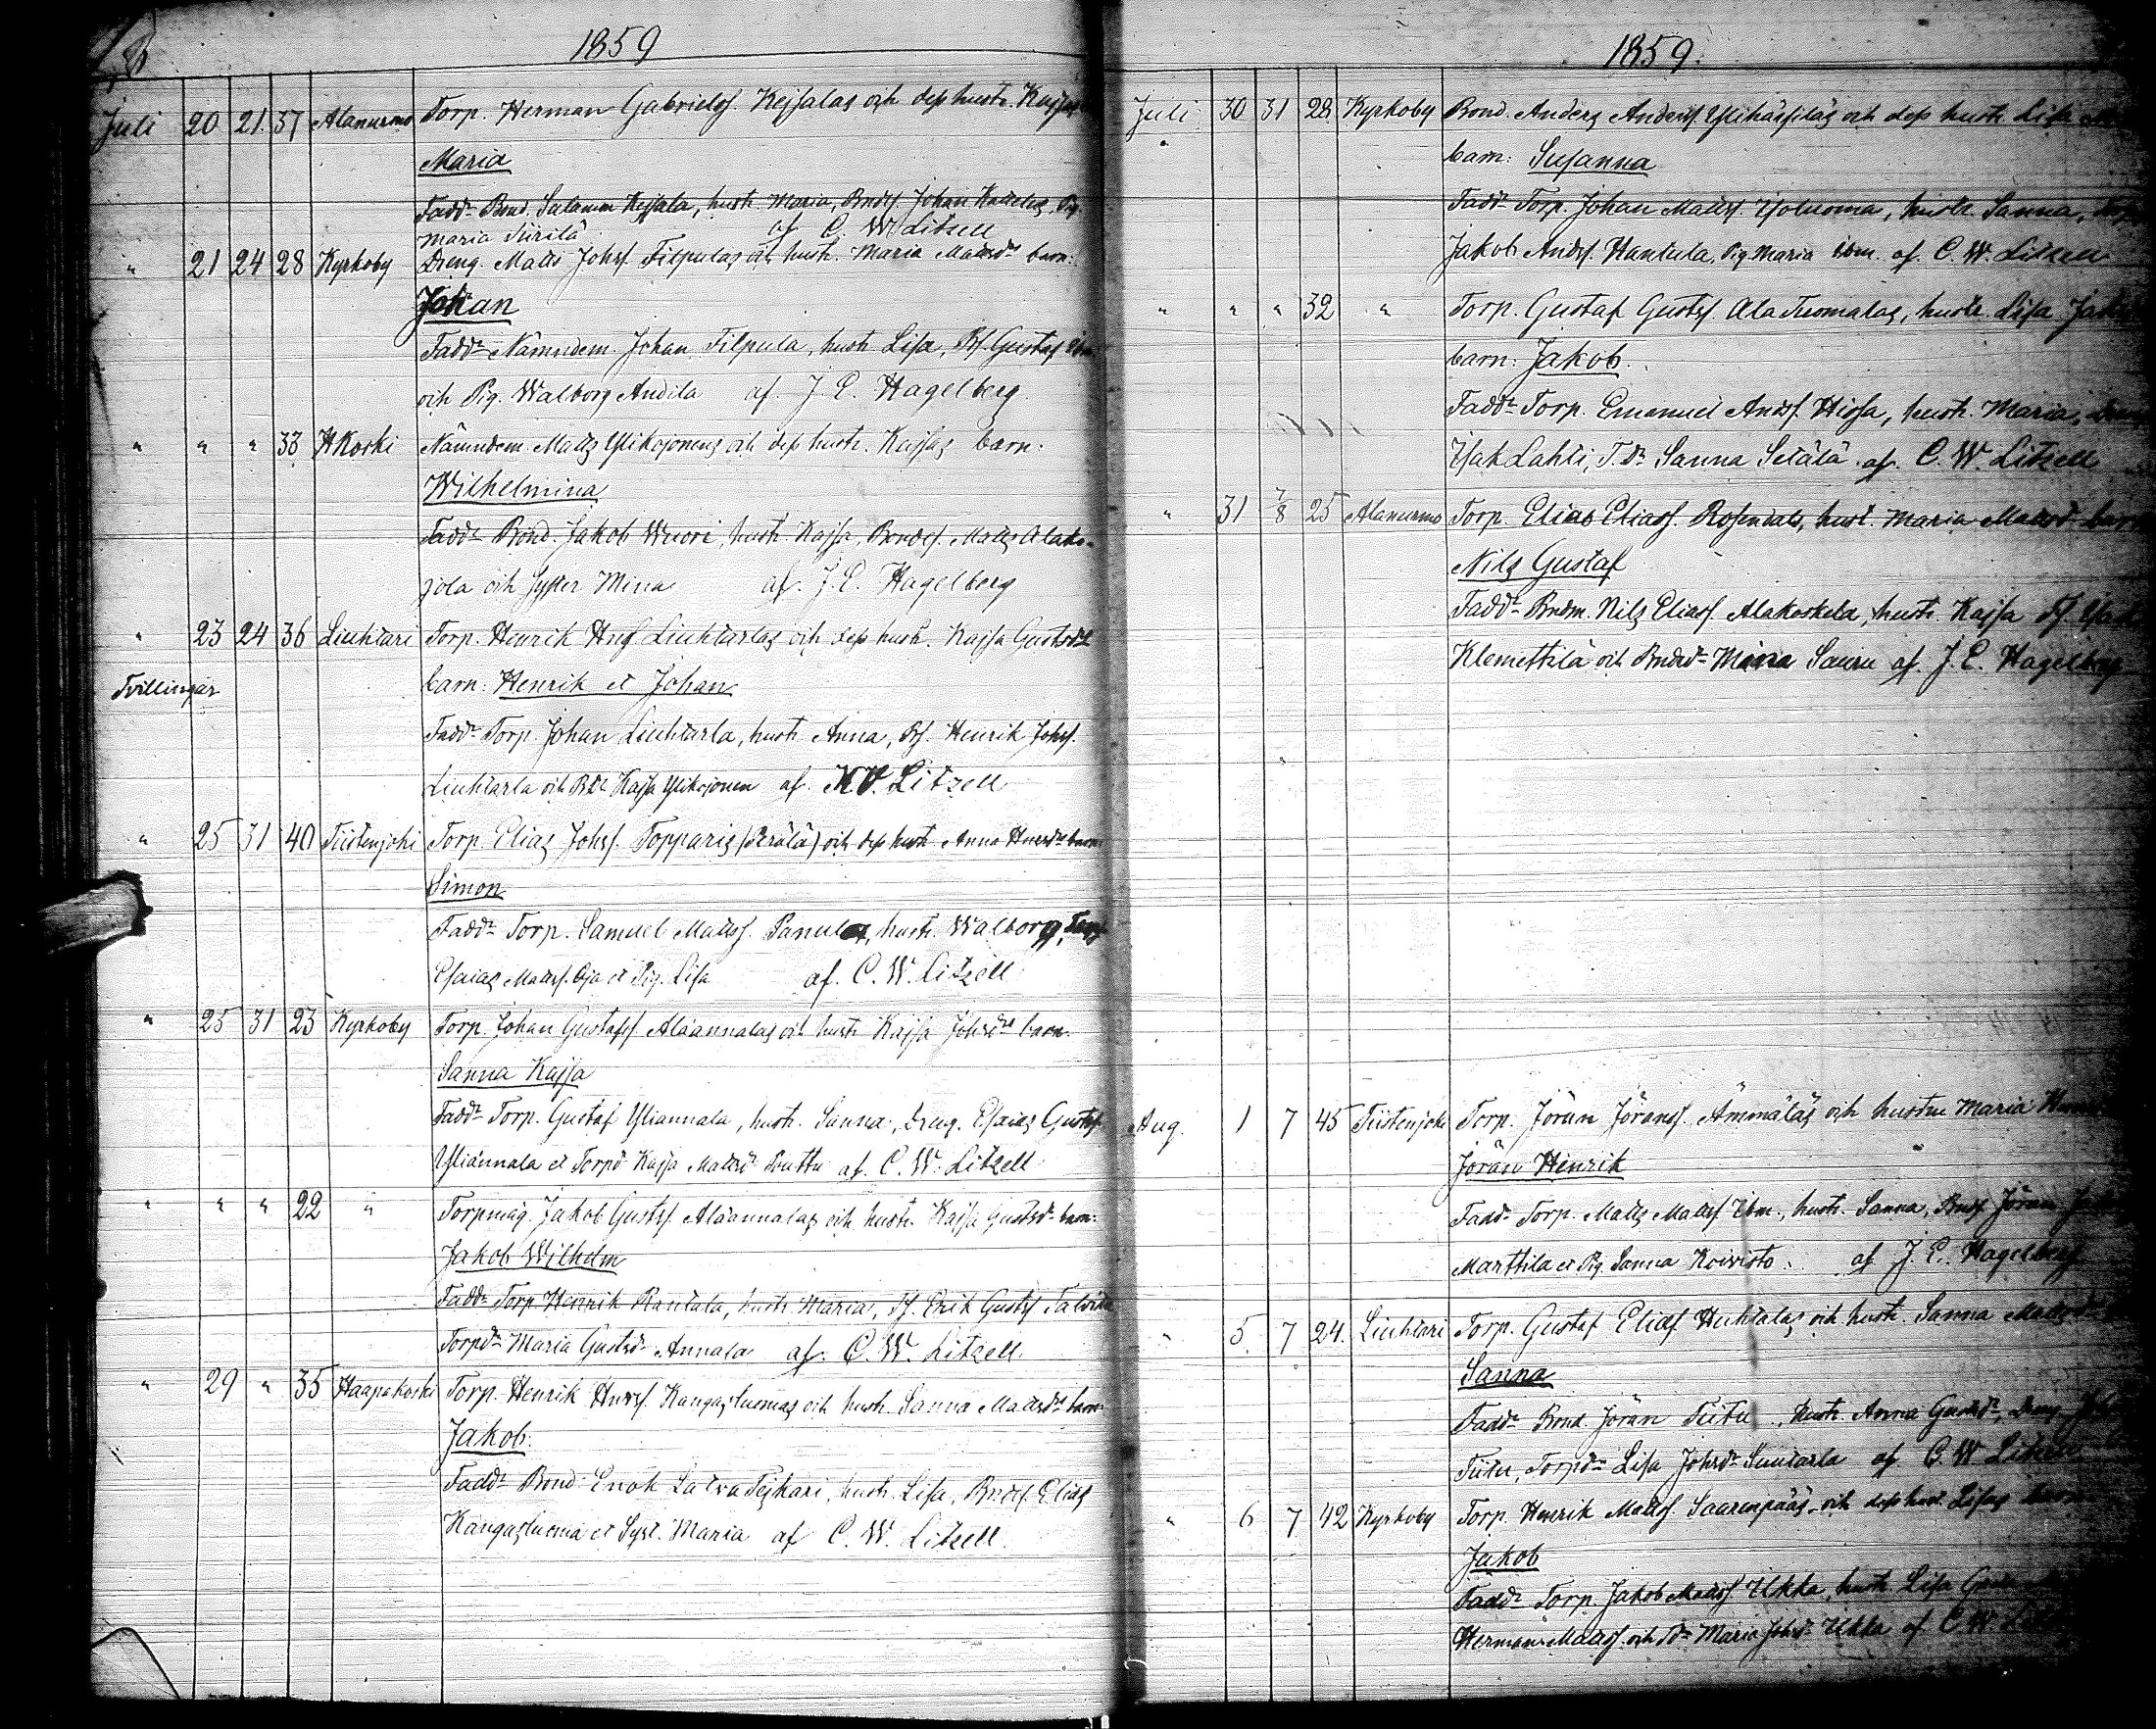 1859
Juli 20 21 37 Alanurmo Torp. Herman Gabrielss. Keisalas och dess hustr. Kajsas
Maria
Fadd:r Bond. Salamon Keisala, hustr. Maria, Bonds. Johan
Maria Siirilä af C. W. Litzell
" 21 24 28 Kyrkoby Dreng. Matts Johss. Filpulas och hustr. Maria Mattsd:r barn:
Johan
Fadd:r Nämndem. Johan Filpula, hustr. Lisa, Bs. Gustaf ibm
och Pig. Walborg Andila af J. E. Hagelberg
" " " 33 H Koski Nämndem. Matts Ylikojonens och dess hustr. Kajsas barn:
Wilhelmina
Fadd:r Bond. Jakob Wuori, hustr. Kajsa, Bondes. Matts Alako-
jola och syster Mina af. J. E. Hagelberg
" 23 24 36 Liuhtari Torp. Henrik Hns Liuhtarlas och dess hustr. Kajsa Gustsd:r
Tvillingar barn: Henrik et Johan
Fadd:r Torp. Johan Liuhtarla, hustr. Anna, Bs. Henrik Johss.
Liuhtarla och Bd:r Kajsa Ylikojonen af. Litzell
" 25 31 40 Tiistenjoki Torp. Elias Johss. Topparis (Perälä) och dess hustr. Anna Henrsd:r barn:
Simon
Fadd:r Torp. Samuel Mattss. Panula, hustr. Walborg,
Esaias Mattss. Oja et Pig. Lisa af. C. W. Litzell
" 25 31 23 Kyrkoby Torp. Johan Gustafss Alaannalas och hustr. Kajsa Johsd:r barn:
Sanna Kajsa
Fadd:r Torp. Gustaf Yliannala, hustr. Sanna, Dreng. Esaias Gustss.
Yliannala et Torpd:r Kajsa Mattsd:r Pouttu af. C. W. Litzell
" " " 22 " Torpmåg. Jakob Gustss. Alaannalas och hustr. Kajsa Gustsd:r barn:
Jakob Wilhelm
Fadd:r Torp. Henrik Rantala, hustr. Maria, Ts. Erik Gustss
Torpd:r Maria Gustsd:r Annala af. C. W. Litzell.
" 29 " 35 Haapakoski Torp. Henrik Henrss. Kangasluomas och hustr. Sanna Mattsd:r barn:
Jakob.
Fadd:r Bond. Enok Latva Peskari, hustr. Lisa, Bndes. Elias
Kangasluoma et Syst. Maria af C. W. Litzell.
1859.
Juli 30 31 28 Kyrkoby Bond. Anders Anderss. Ylihärsiläs och dess hustr. Lisa
barn: Susanna
Fadd:r Torp. Johan Mattss. Isoluoma, hustr. Sanna,
Jakob Andss. Hantula, Pig. Maria ibm. af. C. W. Litzell
" " " 32 " Torp. Gustaf Gustss. Ala Tuomalas, hustr. Lisa
barn: Jakob.
Fadd:r Torp. Emanuel Andss. Hissa, hustr. Maria,
Isak Lahti, T.d:r Sanna Setälä af. C. W. Litzell
" 31 7/8 25 Alanurmo Torp. Elias Eliass. Rosendals, hust. Maria Mattsd:r barn
Nils Gustaf
Fadd:r Bndm. Nils Eliass. Alakoskela, hustr. Kajsa
Klemettilä och Bndsd:r Maria Sauru af J. E. Hagelberg
Aug. 1 7 45 Tiistenjoki Torp. Jöran Jöranss. Ämmäläs och hustru Maria
Jöran Henrik
Fadd:r Torp. Matts Mattss. ibm, hustr. Sanna, Bnds. Jöran
Marttila et Pig. Sanna Koivisto. af J. E. Hagelberg
" 5. 7 24. Liuhtari Torp. Gustaf Eliass Huhtalas och hustr. Sanna Mattsd:r
Sanna
Fadd:r Bond. Jöran Tiitu, hustr. Anna Gustsd:r, Dreng.
Tiitu, Torpd:r Lisa Johsd:r Luutarla af C. W. Litzell
" 6 7 42 Kyrkoby Torp. Henrik Mattss. Saarenpääs och dess hust. Lisas barn
Jakob
Fadd:r Torp. Jakob Mattss Ukka, hustr. Lisa
Herman Mattss. och Td:r Maria Johsd:r Ukka af C. W.